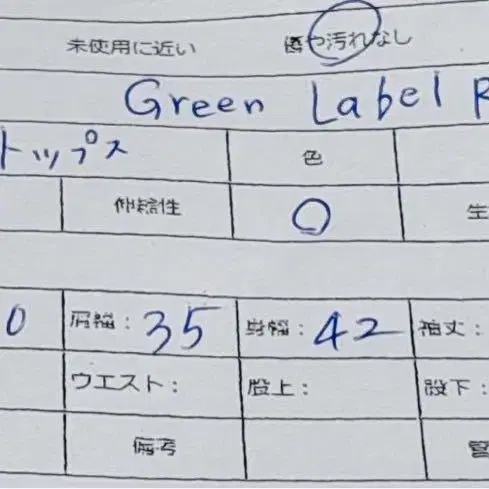 未使用に近い 傷や汚れなし
Green Label R
トップス 色
伸縮性 〇 生
0 肩幅: 35 身幅: 42 袖丈:
ウエスト: 股上: 股下:
備考